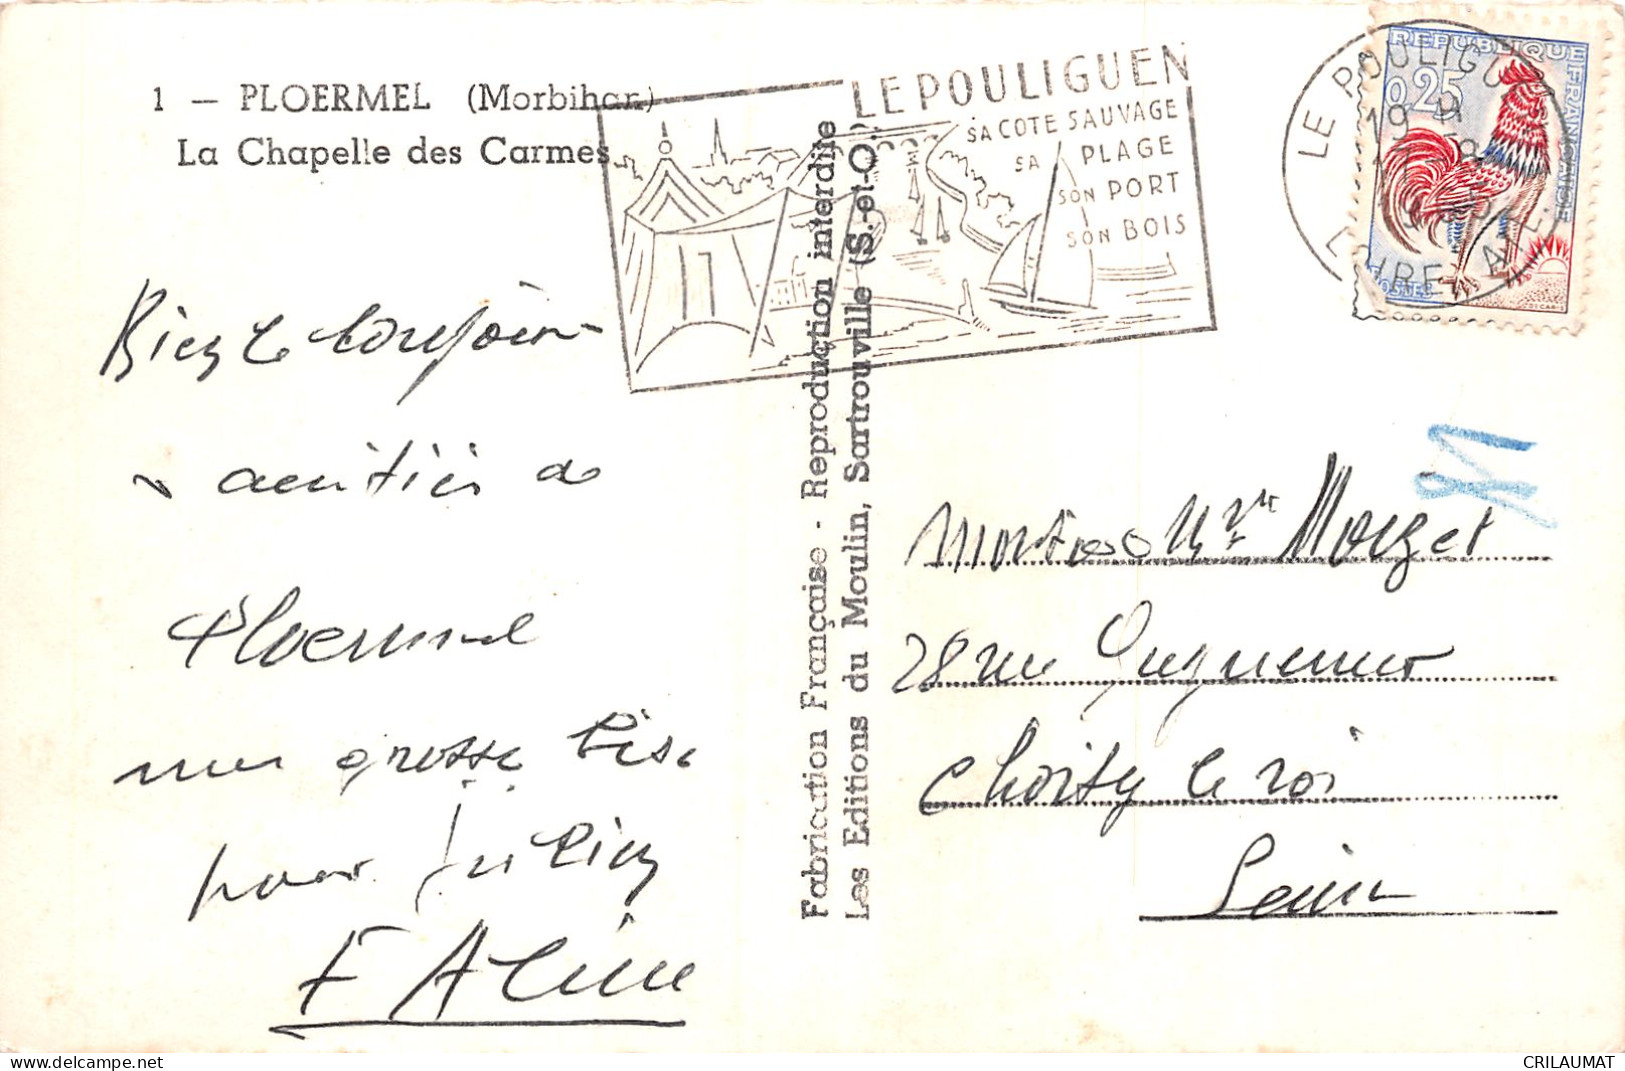 1 — PLOERMEL (Morbihan)
La Chapelle des Carmes
LE POULIGUEN
SA COTE SAUVAGE
SA PLAGE
SON PORT
SON BOIS
LE POULIGUEN
19 H
REPUBLIQUE FRANÇAISE
0,25
POSTES
Fabrication Française - Reproduction interdite
Les Editions du Moulin, Sartrouville (S.-et-O.)
Bien le bonjour
amitiés de
Ploermel
une grosse bise
pour
F Aline
Monsieur et Mme
28 rue Guynemer
Choisy le roi
Seine
delcampe.net
CRILAUMAT